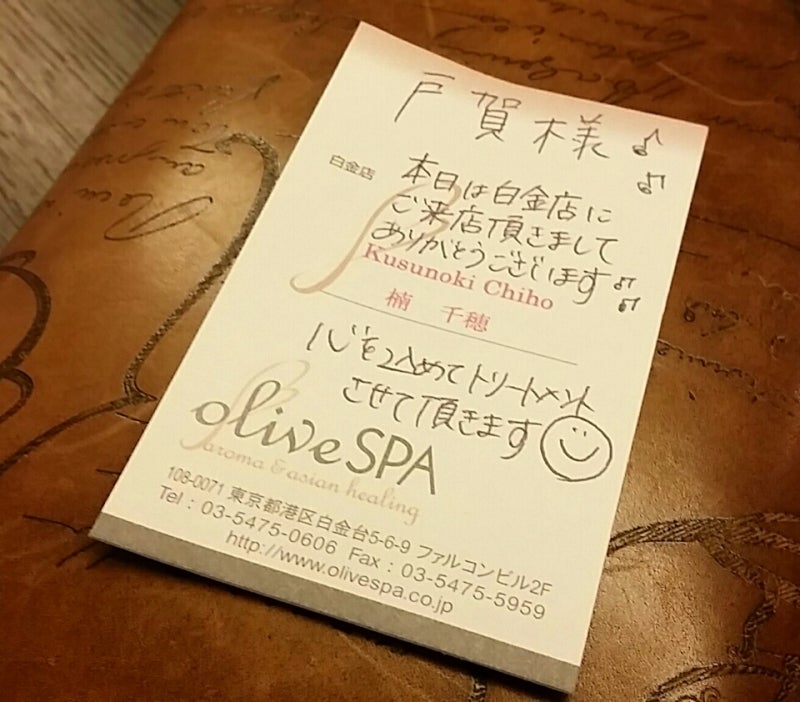 戸賀様♪
♫
白金店
本日は白金店に
ご来店頂きまして
ありがとうございます♫
♫
Kusunoki Chiho
楠 千穂
心を込めてトリートメント
させて頂きます
olive SPA
aroma & asian healing
108-0071 東京都港区白金台5-6-9 ファルコンビル2F
Tel : 03-5475-0606 Fax : 03-5475-5959
http://www.olivespa.co.jp